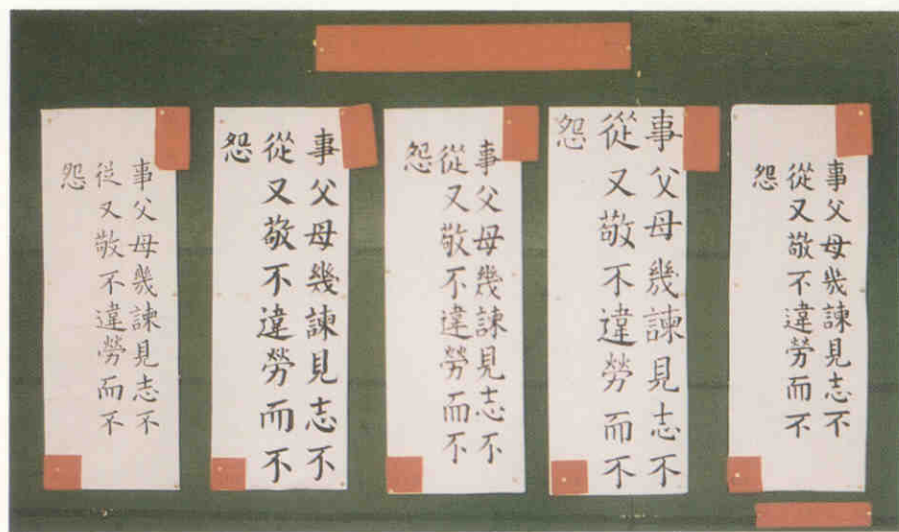 事父母幾諫見志不
從又敬不違勞而不
怨
事父母幾諫見志不
從又敬不違勞而不
怨
事父母幾諫見志不
從又敬不違勞而不
怨
事父母幾諫見志不
從又敬不違勞而不
怨
事父母幾諫見志不
從又敬不違勞而不
怨